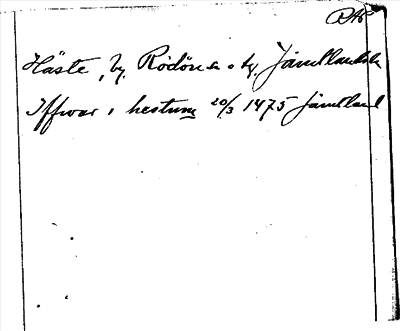 RAP
Häste, by, Rödöns s o tg. Jämtlands l
Iffwar i hestum 20/3 1475 Jämtland